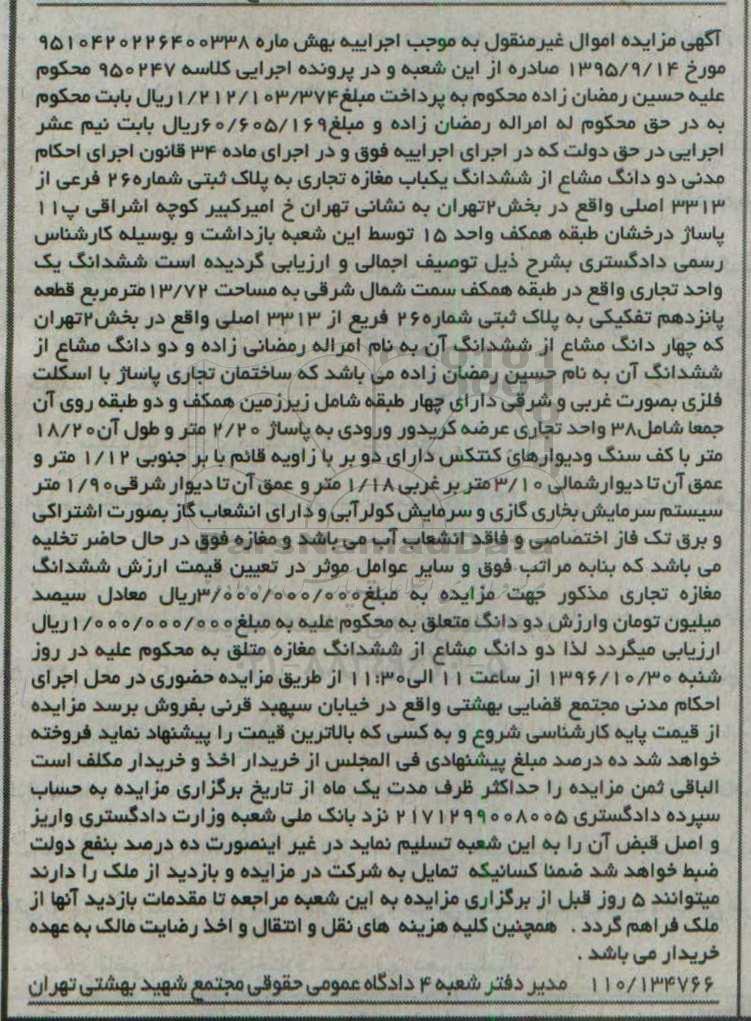 آگهی مزایده اموال غیرمنقول به موجب اجراییه بهش ماره ۹۵۱۰۴۲۰۲۲۶۴۰۰۳۳۸
مورخ ۱۳۹۵/۹/۱۴ صادره از این شعبه و در پرونده اجرایی کلاسه ۹۵۰۲۴۷ محکوم
علیه حسین رمضان زاده محکوم به پرداخت مبلغ۱/۲۱۲/۱۰۳/۳۷۴ریال بابت محکوم
به در حق محکوم له امراله رمضان زاده و مبلغ۶۰/۶۰۵/۱۶۹ریال بابت نیم عشر
اجرایی در حق دولت که در اجرای اجراییه فوق و در اجرای ماده ۳۴ قانون اجرای احکام
مدنی دو دانگ مشاع از ششدانگ یکباب مغازه تجاری به پلاک ثبتی شماره۲۶ فرعی از
۳۳۱۳ اصلی واقع در بخش۲تهران به نشانی تهران خ امیرکبیر کوچه اشراقی پ۱۱
پاساژ درخشان طبقه همکف واحد ۱۵ توسط این شعبه بازداشت و بوسیله کارشناس
رسمی دادگستری بشرح ذیل توصیف اجمالی و ارزیابی گردیده است ششدانگ یک
واحد تجاری واقع در طبقه همکف سمت شمال شرقی به مساحت ۱۳/۷۲مترمربع قطعه
پانزدهم تفکیکی به پلاک ثبتی شماره۲۶ فریع از ۳۳۱۳ اصلی واقع در بخش۲تهران
که چهار دانگ مشاع از ششدانگ آن به نام امراله رمضانی زاده و دو دانگ مشاع از
ششدانگ آن به نام حسین رمضان زاده می باشد که ساختمان تجاری پاساژ با اسکلت
فلزی بصورت غربی و شرقی دارای چهار طبقه شامل زیرزمین همکف و دو طبقه روی آن
جمعا شامل۳۸ واحد تجاری عرضه کریدور ورودی به پاساژ ۲/۲۰ متر و طول آن۱۸/۲۰
متر با کف سنگ ودیوارهای کنتکس دارای دو بر با زاویه قائم با بر جنوبی ۱/۱۲ متر و
عمق آن تا دیوارشمالی ۳/۱۰ متر بر غربی ۱/۱۸ متر و عمق آن تا دیوار شرقی۱/۹۰ متر
سیستم سرمایش بخاری گازی و سرمایش کولرآبی و دارای انشعاب گاز بصورت اشتراکی
و برق تک فاز اختصاصی و فاقد انشعاب آب می باشد و مغازه فوق در حال حاضر تخلیه
می باشد که بنابه مراتب فوق و سایر عوامل موثر در تعیین قیمت ارزش ششدانگ
مغازه تجاری مذکور جهت مزایده به مبلغ۳/۰۰۰/۰۰۰/۰۰۰ریال معادل سیصد
میلیون تومان وارزش دو دانگ متعلق به محکوم علیه به مبلغ۱/۰۰۰/۰۰۰/۰۰۰ریال
ارزیابی میگردد لذا دو دانگ مشاع از ششدانگ مغازه متلق به محکوم علیه در روز
شنبه ۱۳۹۶/۱۰/۳۰ از ساعت ۱۱ الی۱۱:۳۰ از طریق مزایده حضوری در محل اجرای
احکام مدنی مجتمع قضایی بهشتی واقع در خیابان سپهبد قرنی بفروش برسد مزایده
از قیمت پایه کارشناسی شروع و به کسی که بالاترین قیمت را پیشنهاد نماید فروخته
خواهد شد ده درصد مبلغ پیشنهادی فی المجلس از خریدار اخذ و خریدار مکلف است
الباقی ثمن مزایده را حداکثر ظرف مدت یک ماه از تاریخ برگزاری مزایده به حساب
سپرده دادگستری ۲۱۷۱۲۹۹۰۰۸۰۰۵ نزد بانک ملی شعبه وزارت دادگستری واریز
و اصل قبض آن را به این شعبه تسلیم نماید در غیر اینصورت ده درصد بنفع دولت
ضبط خواهد شد ضمنا کسانیکه تمایل به شرکت در مزایده و بازدید از ملک را دارند
میتوانند ۵ روز قبل از برگزاری مزایده به این شعبه مراجعه تا مقدمات بازدید آنها از
ملک فراهم گردد . همچنین کلیه هزینه های نقل و انتقال و اخذ رضایت مالک به عهده
خریدار می باشد .
۱۱۰/۱۳۴۷۶۶ مدیر دفتر شعبه ۴ دادگاه عمومی حقوقی مجتمع شهید بهشتی تهران